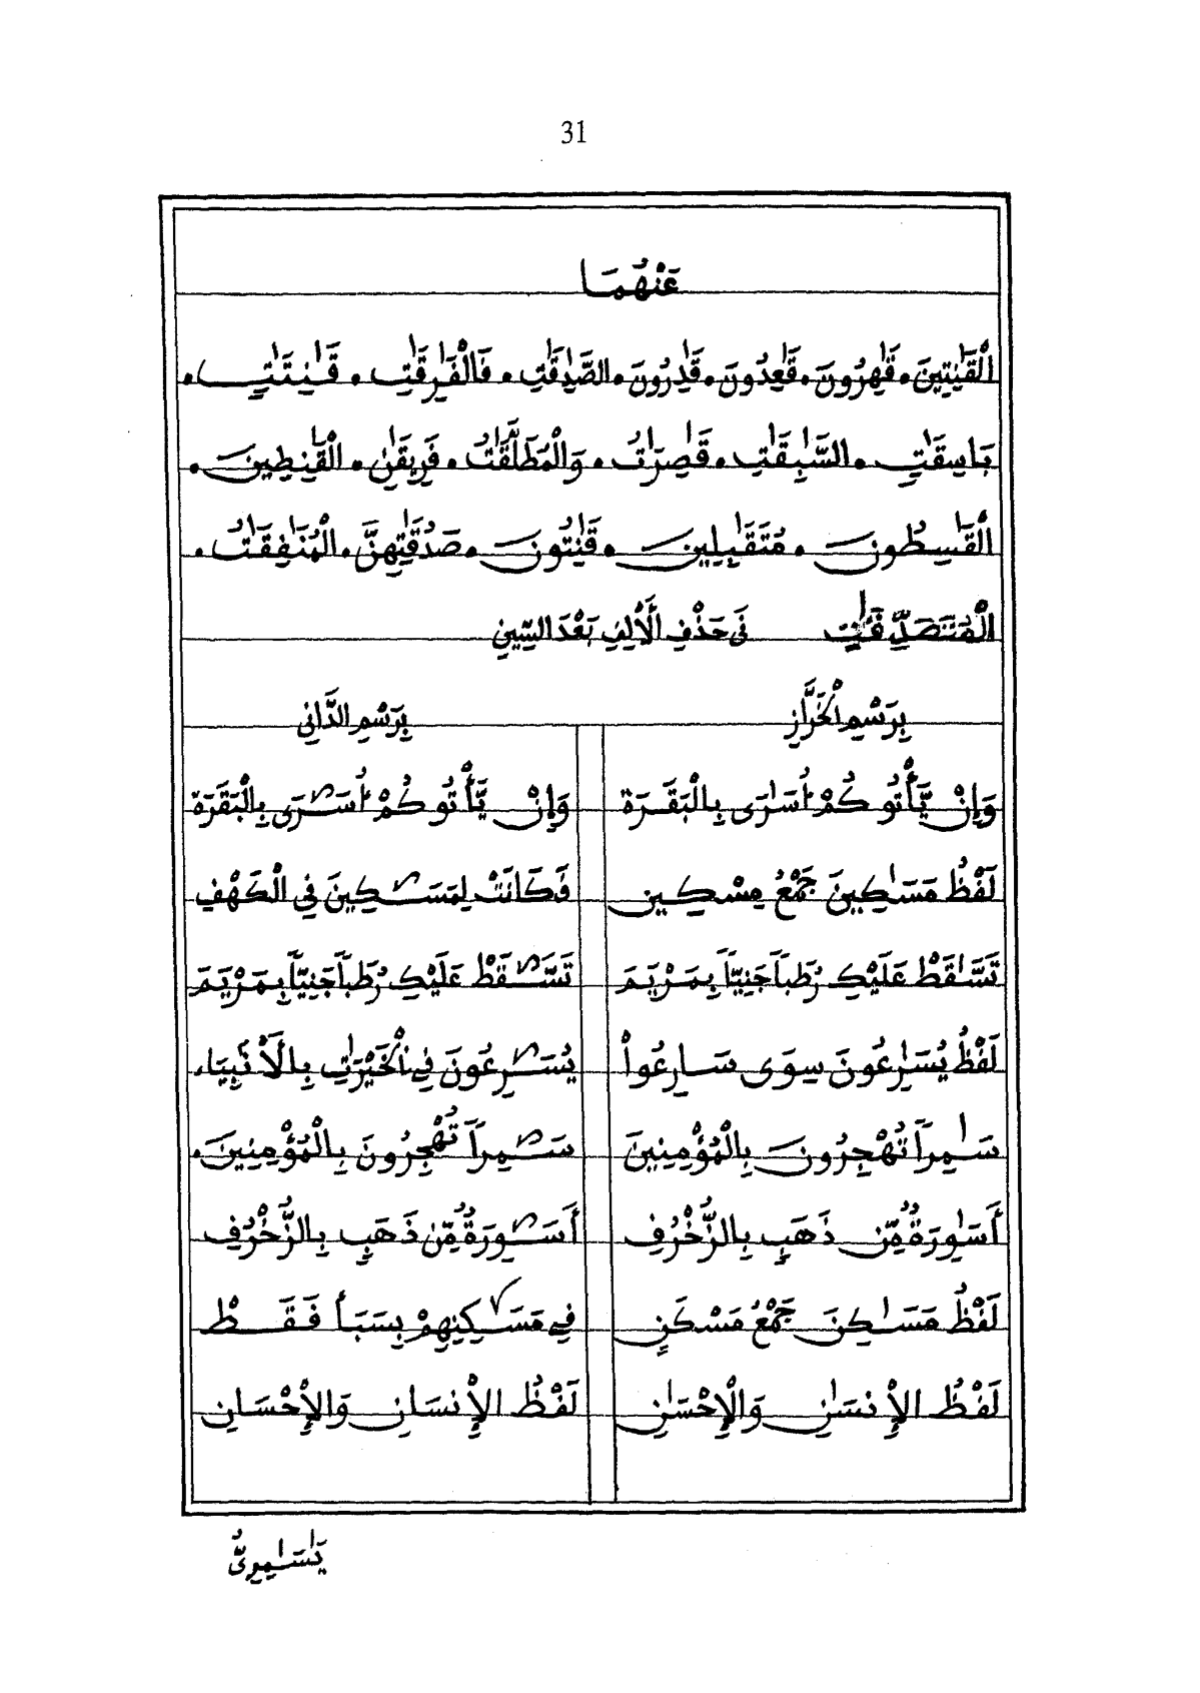 31
عَنْهُمَا
الْقَٰنِتِينَ • قَٰهِرُونَ • قَٰعِدُونَ • قَٰدِرُونَ • الصَّٰدِقَٰتِ • فَالْفَٰرِقَٰتِ • قَٰنِتَٰتٍ •
بَاسِقَٰتٍ • السَّٰبِقَٰتِ • قَٰصِرَٰتُ • وَالْمُطَلَّقَٰتُ • فَرِيقَٰنِ • الْقَٰنِطِينَ •
الْقَٰسِطُونَ • مُتَقَٰبِلِينَ • قَٰنِتُونَ • صَدُقَٰتِهِنَّ • الْمُنَٰفِقَٰتُ •
الْمُتَصَدِّقَٰتِ فِى حَذْفِ الْأَلِفِ بَعْدَ السِّينِ
بِرَسْمِ الْخَرَّازِ
بِرَسْمِ الدَّانِي
وَإِنْ يَّأْتُوكُمْ أُسَٰرَى بِالْبَقَرَة
وَإِنْ يَّأْتُوكُمْ أُسَٰرَى بِالْبَقَرَة
لَفْظُ مَسَٰكِينَ جَمْعُ مِسْكِينٍ
فَكَانَتْ لِمَسَٰكِينَ فِي الْكَهْفِ
تَسَّٰقَطْ عَلَيْكِ رُطَباً جَنِيّاً بِمَرْيَمَ
تَسَّٰقَطْ عَلَيْكِ رُطَباً جَنِيّاً بِمَرْيَمَ
لَفْظُ يُسَٰرِعُونَ سِوَى سَارِعُواْ
يُسَٰرِعُونَ فِي الْخَيْرَٰتِ بِالَأنْبِيَاء
سَٰمِراً تُهْجِرُونَ بِالْمُؤْمِنِينَ
سَٰمِراً تُهْجِرُونَ بِالْمُؤْمِنِينَ •
أَسَٰوِرَةٌ مِّن ذَهَبٍ بِالزُّخْرُفِ
أَسَٰوِرَةٌ مِّن ذَهَبٍ بِالزُّخْرُفِ
لَفْظُ مَسَٰكِنَ جَمْعُ مَسْكَنٍ
فِي مَسَٰكِنِهِمْ بِسَبَأ فَقَطْ
لَفْظُ الإِنسَٰنِ وَالْإِحْسَٰنِ
لَفْظُ الْإِنسَانِ وَالْإِحْسَانِ
يَٰسَٰمِرِىُّ